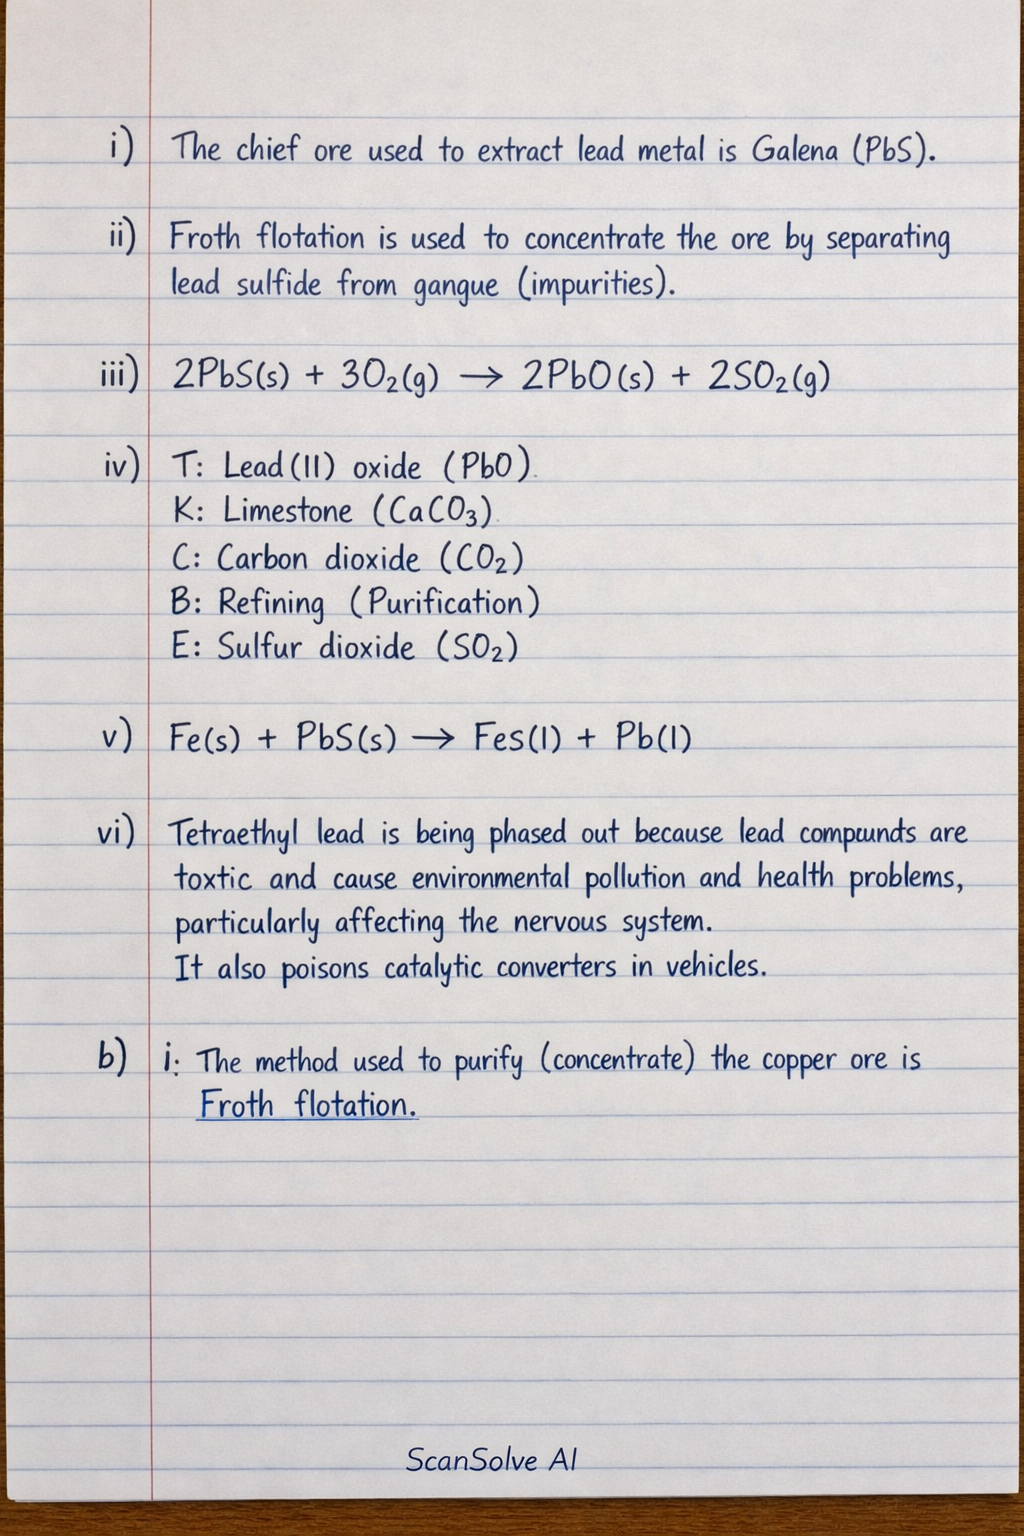 i) The chief ore used to extract lead metal is Galena (PbS).
ii) Froth flotation is used to concentrate the ore by separating
lead sulfide from gangue (impurities).
iii) 2PbS(s) + 3O₂(g) → 2PbO(s) + 2SO₂(g)
iv) T: Lead(II) oxide (PbO).
K: Limestone (CaCO₃).
C: Carbon dioxide (CO₂)
B: Refining (Purification)
E: Sulfur dioxide (SO₂)
v) Fe(s) + PbS(s) → Fes(l) + Pb(l)
vi) Tetraethyl lead is being phased out because lead compunds are
toxtic and cause environmental pollution and health problems,
particularly affecting the nervous system.
It also poisons catalytic converters in vehicles.
b) i: The method used to purify (concentrate) the copper ore is
Froth flotation.
ScanSolve AI